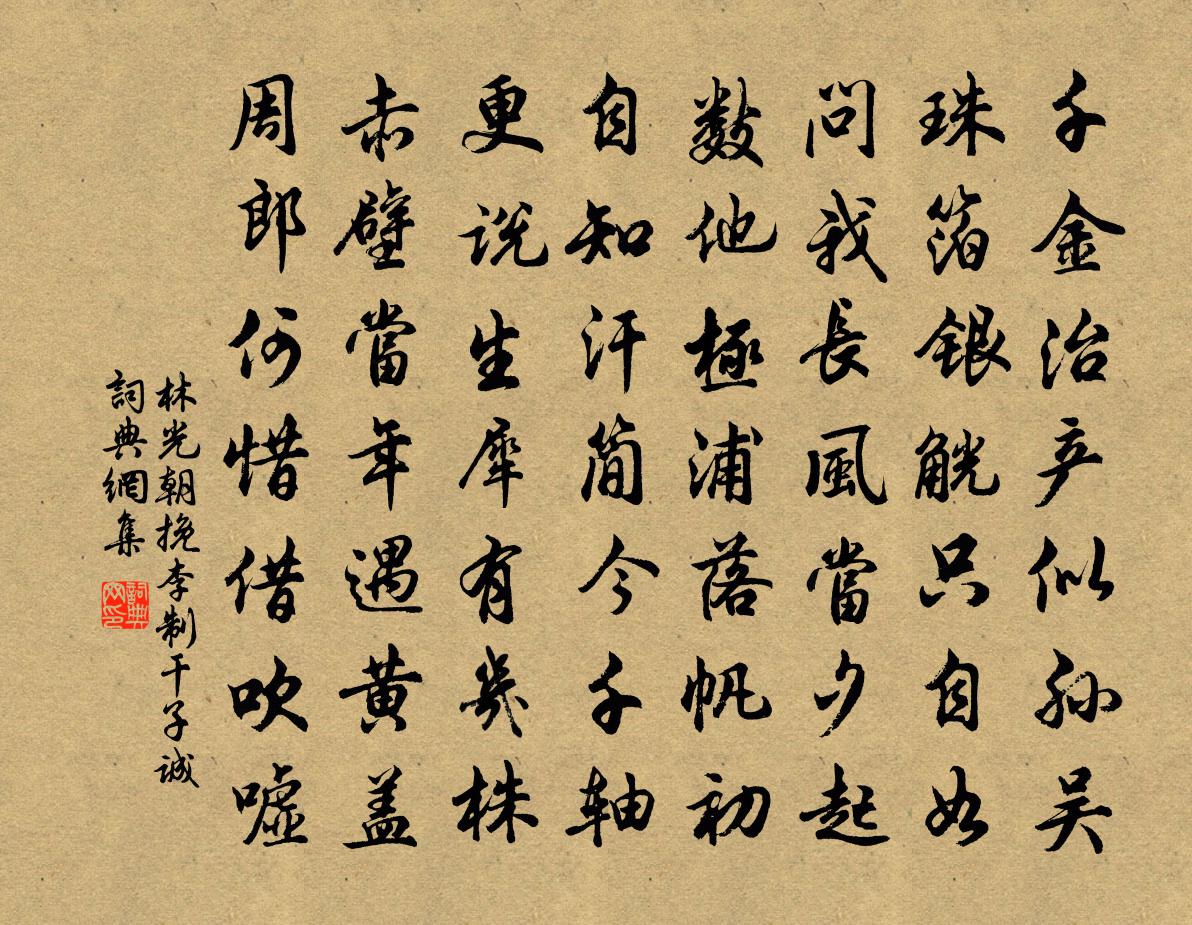 千金治产似孙吴
珠箔银觥只自如
问我長風當夕起
数他極浦落帆初
自知汗简今千轴
更说生犀有幾株
赤壁當年遇黄盖
周郎何惜借吹嘘
林光朝挽李制干子诚
詞典網集
詞典網印